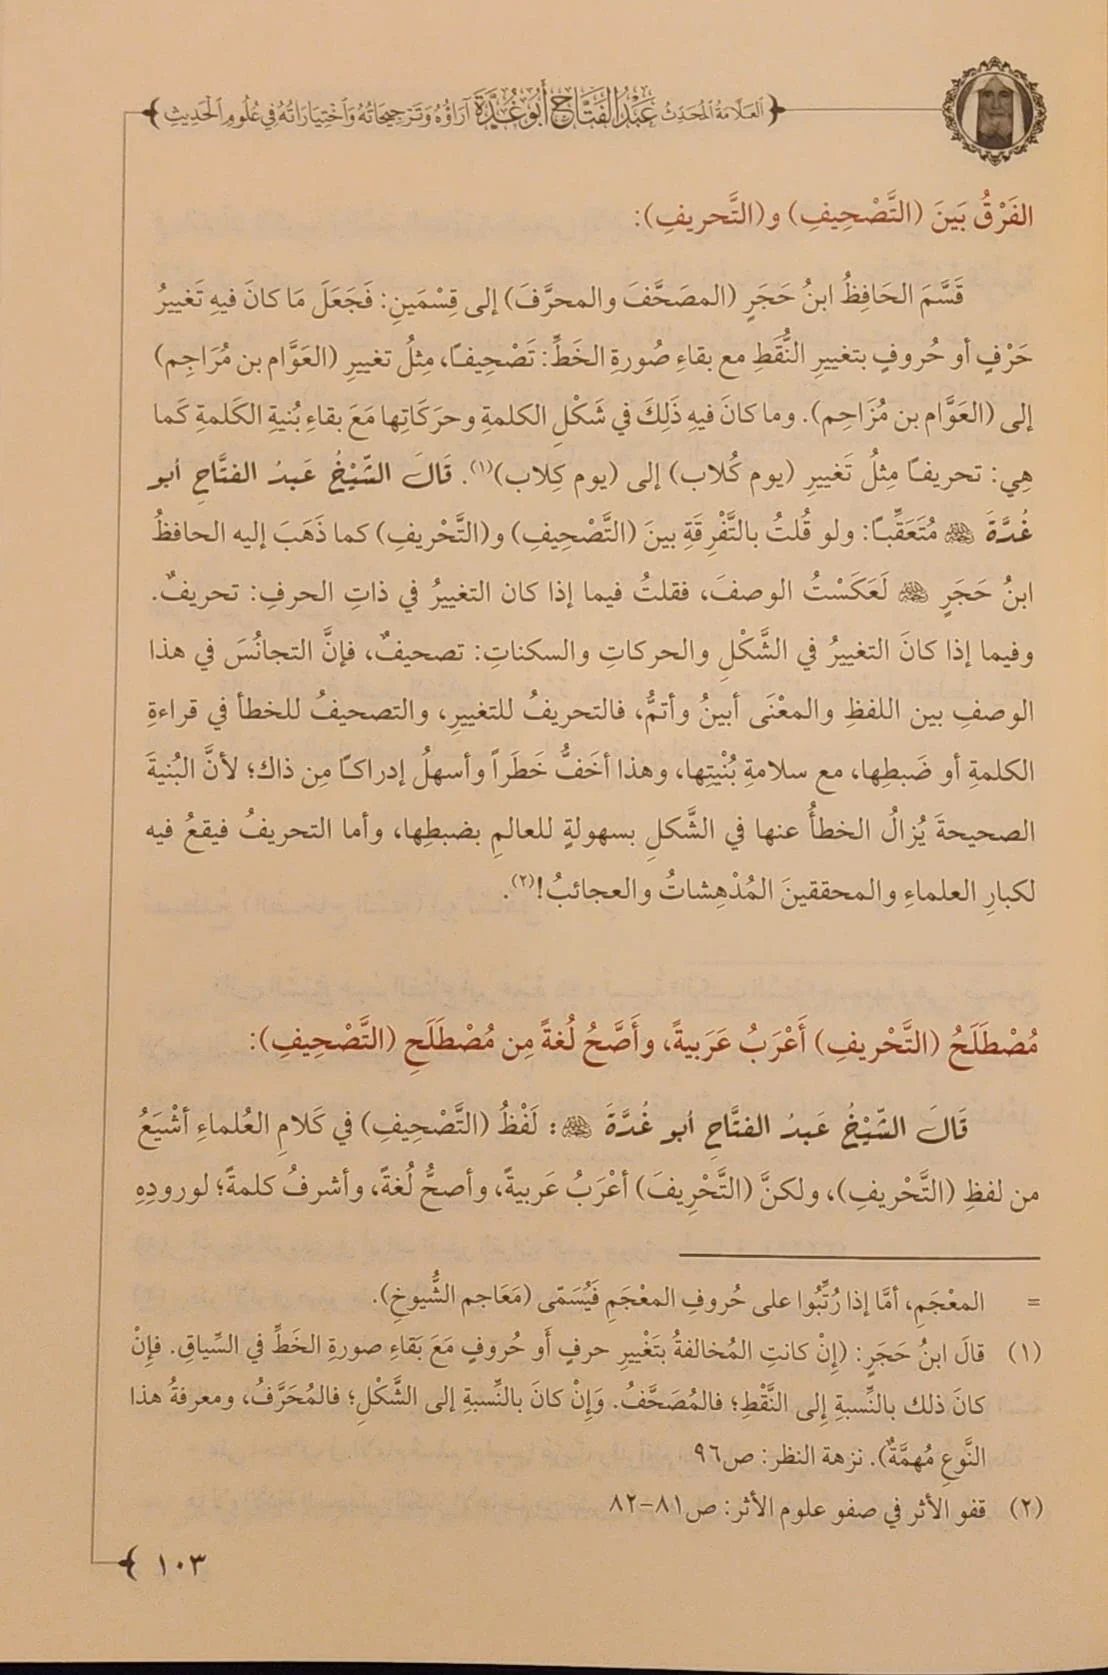 العَلَّامَةُ المُحَدِّثُ عَبْدُ الفَتَّاحِ أَبُو غُدَّةَ آرَاؤُهُ وَتَرْجِيحَاتُهُ وَاخْتِيَارَاتُهُ فِي عُلُومِ الْحَدِيثِ
الفَرْقُ بَينَ (التَّصْحِيفِ) و(التَّحريفِ):
قَسَّمَ الحَافِظُ ابنُ حَجَرٍ (المصَحَّفَ والمحرَّفَ) إلى قِسْمَينِ: فَجَعَلَ مَا كانَ فيهِ تَغييرُ
حَرْفٍ أو حُروفٍ بتغييرِ النُّقَطِ مع بقاءِ صُورةِ الخَطِّ: تَصْحِيفًا، مِثلُ تغييرِ (العَوَّام بن مُرَاجِم)
إلى (العَوَّام بن مُزَاحِم). وما كانَ فيه ذَلِكَ في شَكْلِ الكلمةِ وحرَكَاتِها مَعَ بقاءِ بُنيةِ الكَلمةِ كَما
هِي: تحريفًا مِثلُ تَغييرِ (يوم كُلاب) إلى (يوم كِلاب)(١). قَالَ الشَّيْخُ عَبدُ الفتَّاحِ أبو
غُدَّةَ ﵀ مُتَعَقِّبًا: ولو قُلتُ بالتَّفْرِقَةِ بينَ (التَّصْحِيفِ) و(التَّحْريفِ) كما ذَهَبَ إليه الحافظُ
ابنُ حَجَرٍ ﵀ لَعَكَسْتُ الوصفَ، فقلتُ فيما إذا كان التغييرُ في ذاتِ الحرفِ: تحريفٌ.
وفيما إذا كانَ التغييرُ في الشَّكْلِ والحركاتِ والسكناتِ: تصحيفٌ، فإنَّ التجانُسَ في هذا
الوصفِ بين اللفظِ والمعْنَى أبينُ وأتمُّ، فالتحريفُ للتغييرِ، والتصحيفُ للخطأ في قراءةِ
الكلمةِ أو ضَبطِها، مع سلامةِ بُنْيتِها، وهذا أخَفُّ خَطَراً وأسهلُ إدراكًا مِن ذاك؛ لأنَّ البُنيةَ
الصحيحةَ يُزالُ الخطأُ عنها في الشَّكلِ بسهولةٍ للعالمِ بضبطِها، وأما التحريفُ فيقعُ فيه
لكبارِ العلماءِ والمحققينَ المُدْهِشاتُ والعجائبُ!(٢).
مُصْطَلَحُ (التَّحْريفِ) أَعْرَبُ عَرَبيةً، وأَصَّحُ لُغةً مِن مُصْطَلَحِ (التَّصْحِيفِ):
قَالَ الشَّيْخُ عَبدُ الفتَّاحِ أبو غُدَّةَ ﵀: لَفْظُ (التَّصْحِيفِ) في كَلامِ العُلماءِ أشْيَعُ
من لفظِ (التَّحْريفِ)، ولكنَّ (التَّحْرِيفَ) أعْرَبُ عَربيةً، وأصحُّ لُغةً، وأشرفُ كلمةً؛ لورودِهِ
= المعْجَمِ، أمَّا إذا رُتِّبُوا على حُروفِ المعْجَمِ فَيُسَمّى (مَعَاجم الشُّيوخِ).
(١) قالَ ابنُ حَجَرٍ: (إنْ كانتِ المُخالفةُ بتَغْييرِ حرفٍ أَو حُروفٍ مَعَ بَقاءِ صورةِ الخَطِّ في السِّياقِ. فإنْ
كانَ ذلك بالنِّسبةِ إلى النَّقْطِ؛ فالمُصَحَّفُ. وَإِنْ كانَ بالنِّسبةِ إلى الشَّكْلِ؛ فالمُحَرَّفُ، ومعرفةُ هذا
النَّوعِ مُهمَّةٌ). نزهة النظر: ص٩٦
(٢) قفو الأثر في صفو علوم الأثر: ص٨١-٨٢
١٠٣